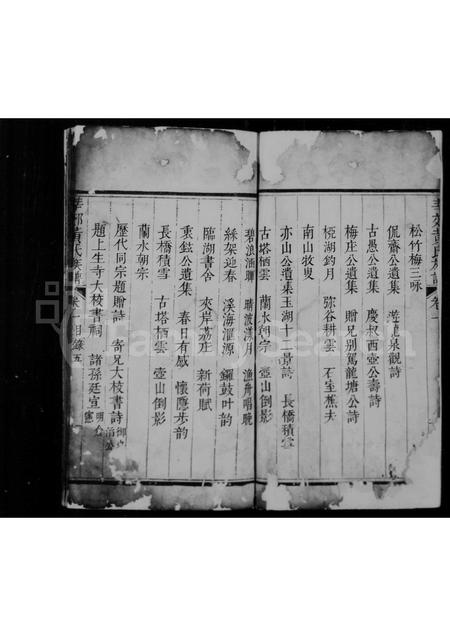 松竹梅三咏
侃齋公遺集 遊龍泉觀詩
古愚公遺集 慶叔西壺公壽詩
梅庄公遺集 贈兄别駕龍塘公詩
桠湖釣月 弥谷耕雲 石室樵夫
南山牧叟
亦山公遺集玉湖十二景詩 長橋積雪
古塔栖雲 蘭水朝宗 壺山倒影
碧浪涵聯 晴波漾月 漁舟唱晚
綵架迎春 溪海滙源 鑼鼓叶韵
臨湖書舍 夾岸荔庄 新荷賦
秉鉉公遺集 春日有感 懷應步韵
長橋積雪 古塔栖雲 壺山倒影
蘭水朝宗
歷代同宗題贈詩 寄兄大棱書詩
題上生寺大棱書祠 諸孫廷宣
黃氏族譜 卷一目錄 五
FamilySearch